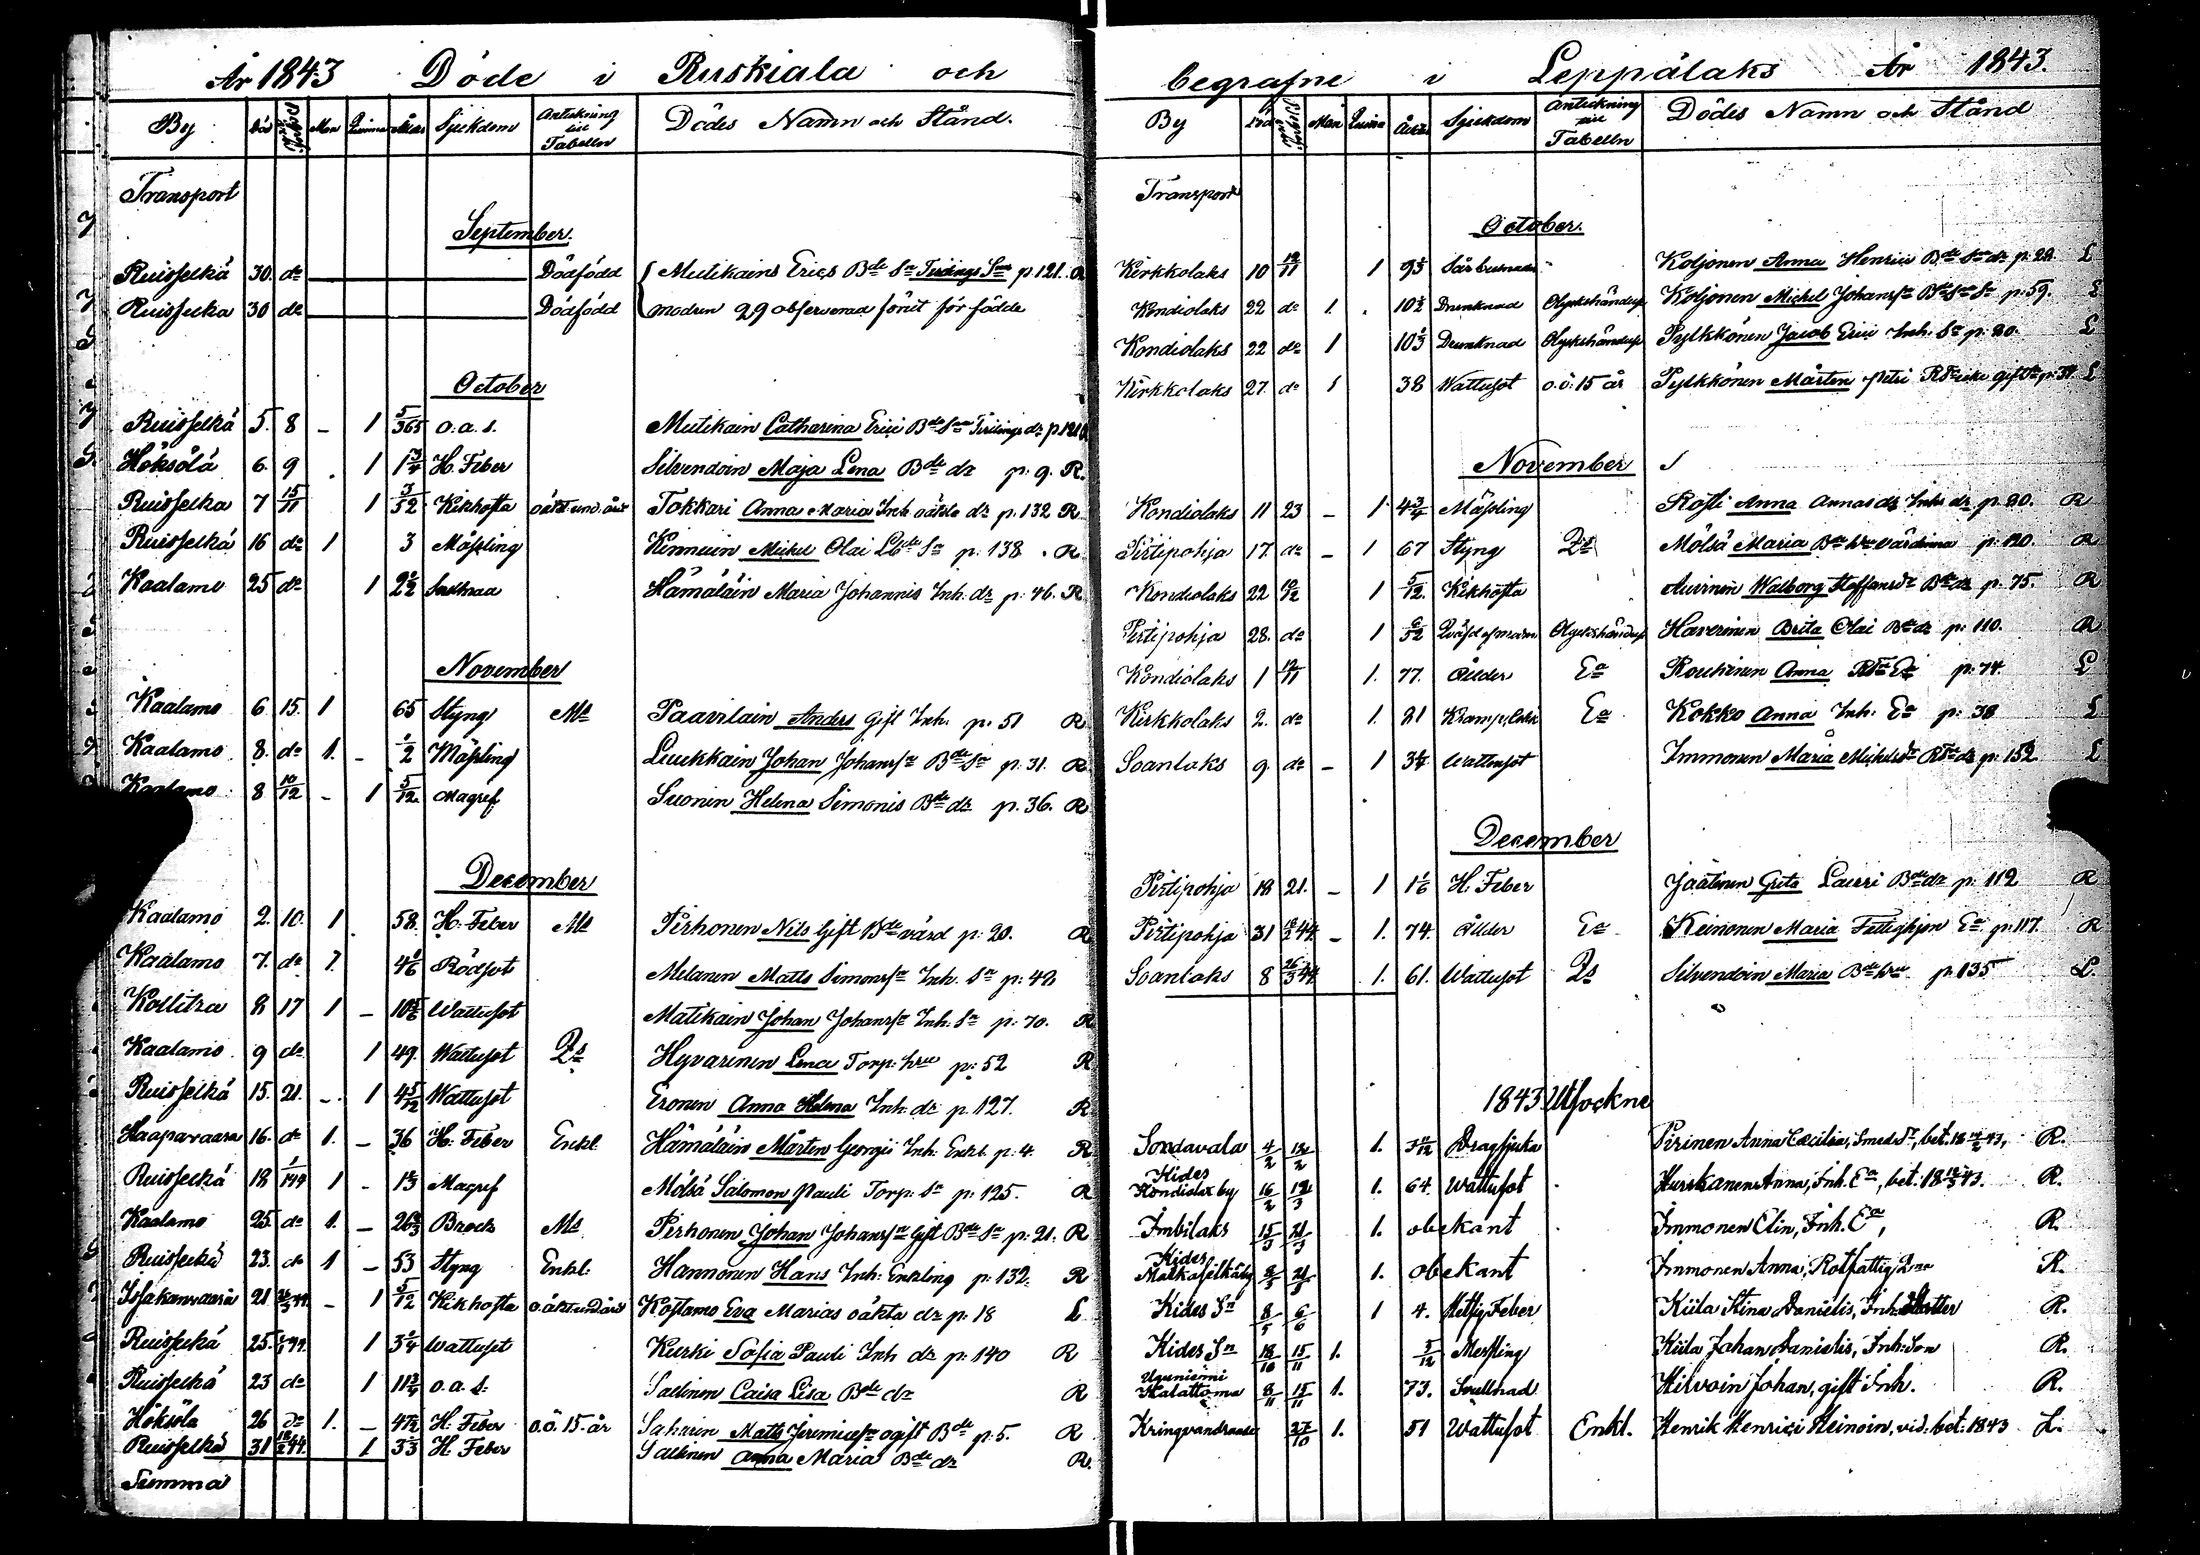 År 1843 Döde i Ruskiala och
By Död Begrafd Man Qvinna Ålder Sjukdom Anteckning till Tabellen Dödes Namn och Stånd.
Transport
September.
Ruisselkä 30. do Dödfödd Mutikains Erics Bde
Ruisselkä 30 do Dödfödd modren 29
October
Ruisselkä 5. 8 – 1 5/365 o.a.s. Mutikain Catharina Erici
Höksölä 6. 9 . 1 1 3/4 H. Feber Silvendoin Maja Lena Bde dr p. 9. R.
Ruisselka 7 15/11 1 3/52 Kikhosta oäkt. und. året Tokkari Anna Maria Inh oäkta dr p. 132 R
Ruisselkä 16 do 1 3 Mässling Kinnuin Michel Olai Lbde Sn p. 138 . R
Kaalamo 25 do 1 2 1/2 Hämäläin Maria Johannis Inh. dr p. 46. R
November
Kaalamo 6 15. 1 65 Styng Ms Paavilain Anders Gift Inh. p. 51 R
Kaalamo 8. do 1. – 1/2 Mässling Luukkain Johan Johanssn Bde Sn p. 31. R
Kaalamo 8 10/12 – 1 5/12 Magref Suonin Helena Simonis Bde dr p. 36. R
December
Kaalamo 2. 10. 1 58. H. Feber Ms Pirhonen Nils Gift Bde värd p. 20. R
Kaalamo 7. do 1. 4 1/6 Rödsot Milanen Matts Simonssn Inh. Sn p. 49
Kollitza 8 17 1 – Wattusot Matikain Johan Johanssn Inh. Sn p. 70. R
Kaalamo 9 do 1 49. Wattusot Qs Hyvärinen Lena Torp. hru p. 52 R
Ruisselkä 15. 21. – 1 4 5/12 Wattusot Eronen Anna Helena Inh. dr p. 127. R
Haapavaara 16. do 1. – 36 H. Feber Enkl. Hämäläin Mårten Georgii Inh: Enkl. p. 4. R
Ruisselkä 18 1/1 44 1 – Magref Mölsä Salomon Pauli Torp. Sn p. 125. R
Kaalamo 25. do 1. – Brock Ms Pirhonen Johan Johanssn Gift Bde Sn p. 21. R
Ruisselkä 23. do 1 – 53 Styng Enkl: Hannonen Hans Inh: Enkling p. 132. R
21 – 1 5/12 Kikhosta o.äkt. und. året Kostamo Eva Marias oäkta dr p. 18 L
Ruisselkä 25. 1 3 1/4 Wattusot Kurki Sofia Pauli Inh dr p. 140 R
Ruisselkä 23 do 1 11 3/4 o.a.s. Sallinen Caisa Lisa Bde dr R
Höksölä 26 do 1. – H. Feber o.ö. 15. år Saharin Matts Jeremiæsn ogift Bde p. 5. R
Ruisselkä 31 1 H. Feber Sallinen Anna Maria Bde dr R.
Summa
begrafne i Leppälaks År 1843.
By Död Begrafd Man Qvinna Ålder Sjukdom Anteckning till Tabellen Dödes Namn och Stånd
Transport
October.
Kirkkolaks 10 12/11 1 Koljonen Anna Henrici Bde p. 22. L
Kondiolaks 22 do 1. Drunknad Olyckshändelse Koljonen Michel Johanssn Bde p. 59. L
Kondiolaks 22 do 1 10 1/3 Drunknad Olyckshändelse Pylkkönen Jacob Erici Inh. Sn p. 20. L
Kirkkolaks 27. do 1 38 Wattusot o.ö. 15 år Pylkkönen Mårten Petri L
November
Kondiolaks 11 23 – 1 4 3/4 Mässling Anna Annas dr Inh. dr p. 20. R
Pirtipohja 17. do – 1 67 Styng Qs Mölsä Maria värdinna p. 120. R
Kondiolaks 22 10/12 1 5/12. Kikhosta Auvinin Walborg Staffansdr Bde dr p. 75. R
Pirtipohja 28. do 1 6/52 Qväfd af modren Olyckshändelse Haverinen Brita Olai Bde dr p. 110. R
Kondiolaks 1 12/11 1. 77. Ålder Ea Anna p. 74. L
Kirkkolaks 2. do 1. 21 Ea Kokko Anna Inh: Ea p. 38 L
Soanlaks 9. do – 1 3 1/4 Wattusot Immonen Maria Michelsdr p. 152 L
December
Pirtipohja 18 21. – 1 1 1/6 H. Feber Jäätinen Greta Lauri Bde dr p. 112 R
Pirtipohja 31 – 1. 74. Ålder Ea Keinonen Maria Fattighjon Ea p. 117. R
Soanlaks 8 1. 61. Wattusot Qs Silvendoin Maria p. 135 L.
1843 Utsockne
Sordavala 4/2 12/2 1. Dragsjuka Pirinen Anna Cæcilia, R.
Kides
Kondiolax by 16/2 12/3 1. 64. Wattusot Hurskanen Anna, Inh. Ea, R.
Imbilaks 15/3 21/3 1. obekant Immonen Elin, Inh. Ea, R.
Kides
1. obekant Immonen Anna, Rotfattig R.
Kides Sn 8/5 6/6 1 4. Hettsig Feber Kiila Stina Danielis, Inh. dotter R.
Kides Sn 18/10 15/11 1. 5/12 Messling Kiila Johan Danielis, Inh: Son R.
8/11 15/11 1. 73. Svullnad Hilvoin Johan, gift Inh. R.
27/10 1. 51 Wattusot Enkl. Henrik Henrici Heinoin, vid. bet. 1843 L.